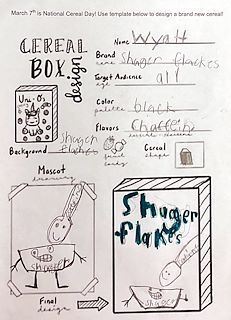 March 7th is National Cereal Day! Use template below to design a brand new cereal!
CEREAL
BOX
design
Name Wyatt
Brand
name shuger flackes
Target Audience
age all
Color
palette black
Flavors
Uni-O's
Background shuger
flackes
Cereal
shape
Mascot
drawing
Shuger
flakes
Final
design